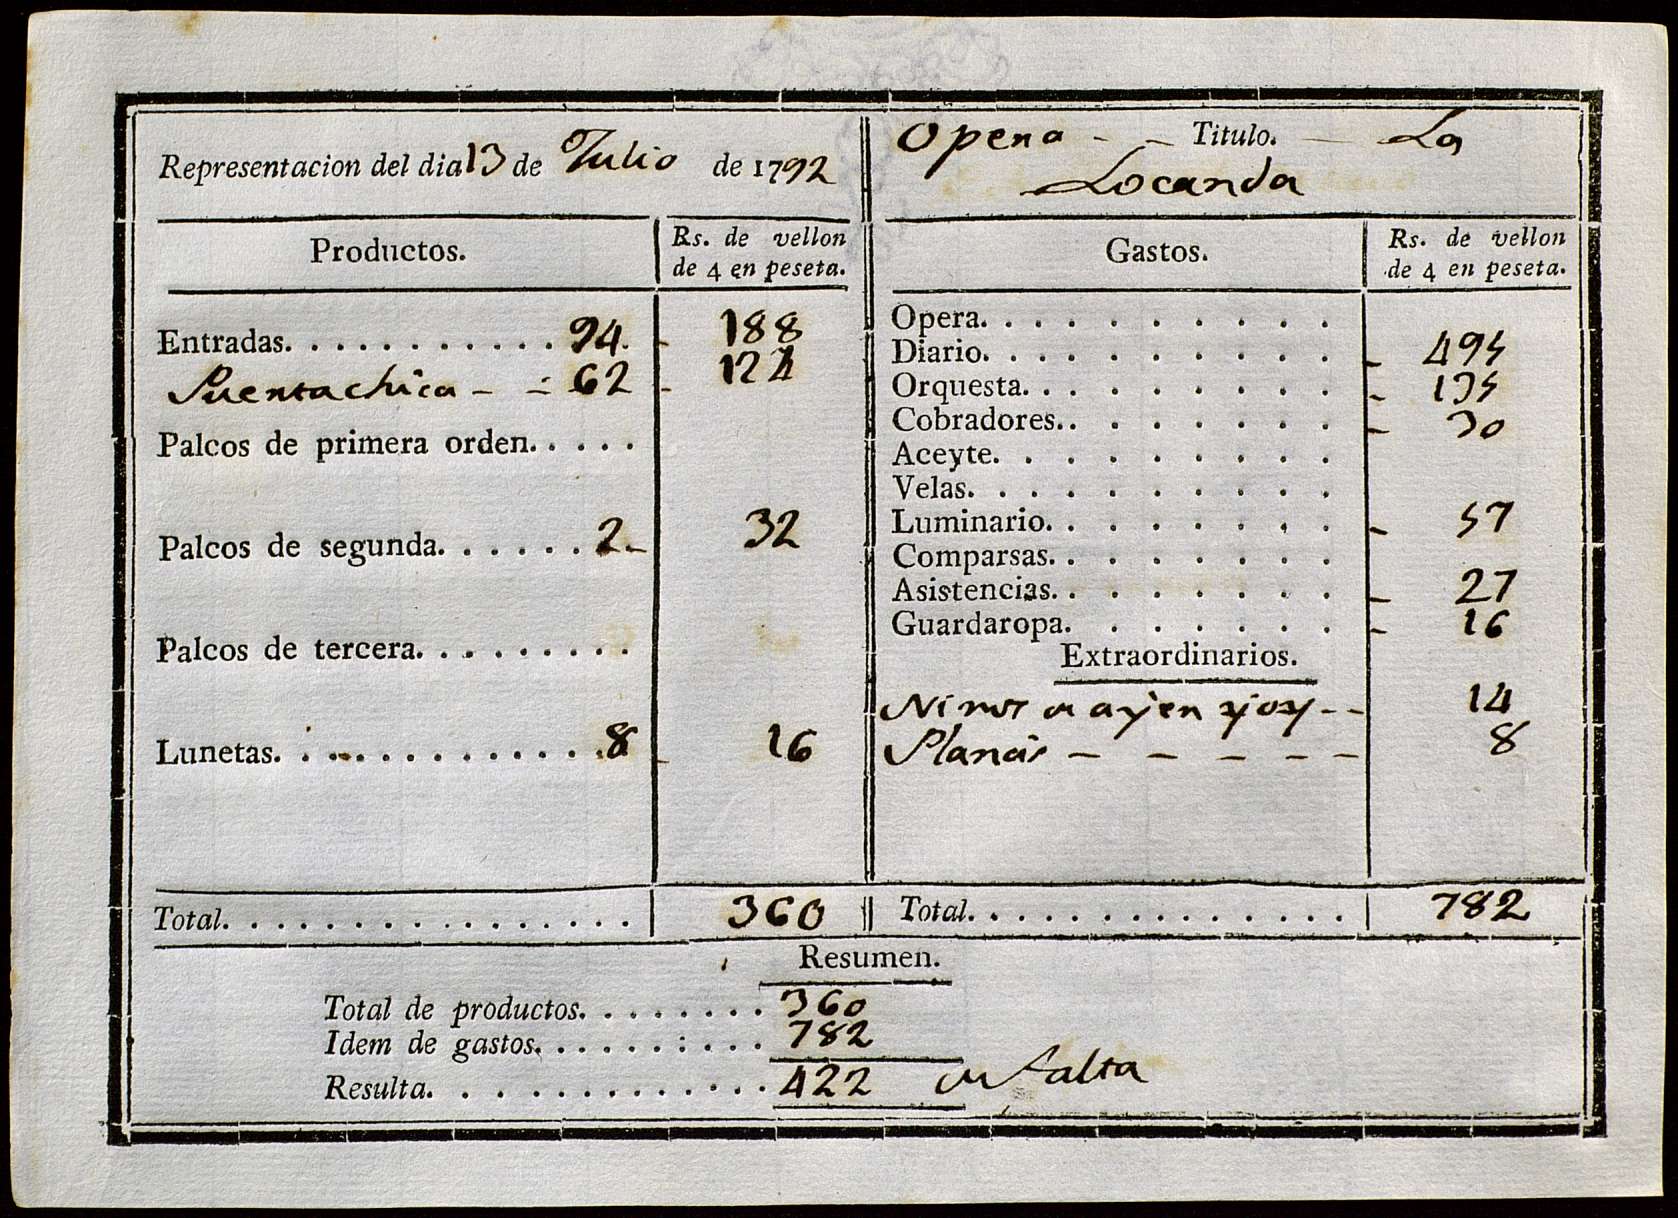 Representacion del dia 13 de Julio de 1792
Productos.
Rs. de vellon
de 4 en peseta.
Entradas. . . . . . . . . . . . 94. - 188
Puerta chica - - 62 - 124
Palcos de primera orden. . . . .
Palcos de segunda. . . . . . . 2 - 32
Palcos de tercera. . . . . . . . .
Lunetas. . . . . . . . . . . . . 8 - 16
Total. . . . . . . . . . . . . . . . 360
Opera - - Titulo. - La
Locanda
Gastos.
Rs. de vellon
de 4 en peseta.
Opera. . . . . . . . . . .
Diario. . . . . . . . . . . - 495
Orquesta. . . . . . . . . . - 135
Cobradores. . . . . . . . . - 30
Aceyte. . . . . . . . . .
Velas. . . . . . . . . . .
Luminario. . . . . . . . - 57
Comparsas. . . . . . . .
Asistencias. . . . . . . . - 27
Guardaropa. . . . . . . - 16
Extraordinarios.
de ayer y oy - - 14
- - - - - 8
Total. . . . . . . . . . . . . . 782
Resumen.
Total de productos. . . . . . . . 360
Idem de gastos. . . . . . . . . 782
Resulta. . . . . . . . . . . . 422 de falta